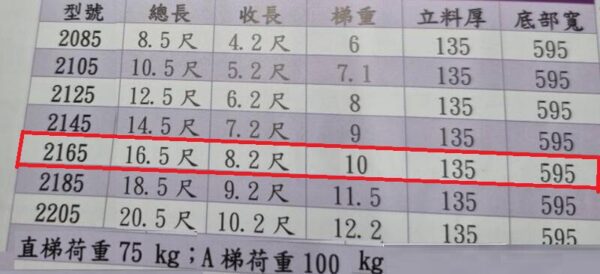 型號 總長 收長 梯重 立料厚 底部寬
2085 8.5尺 4.2尺 6 135 595
2105 10.5尺 5.2尺 7.1 135 595
2125 12.5尺 6.2尺 8 135 595
2145 14.5尺 7.2尺 9 135 595
2165 16.5尺 8.2尺 10 135 595
2185 18.5尺 9.2尺 11.5 135 595
2205 20.5尺 10.2尺 12.2 135 595
直梯荷重75 kg；A梯荷重100 kg